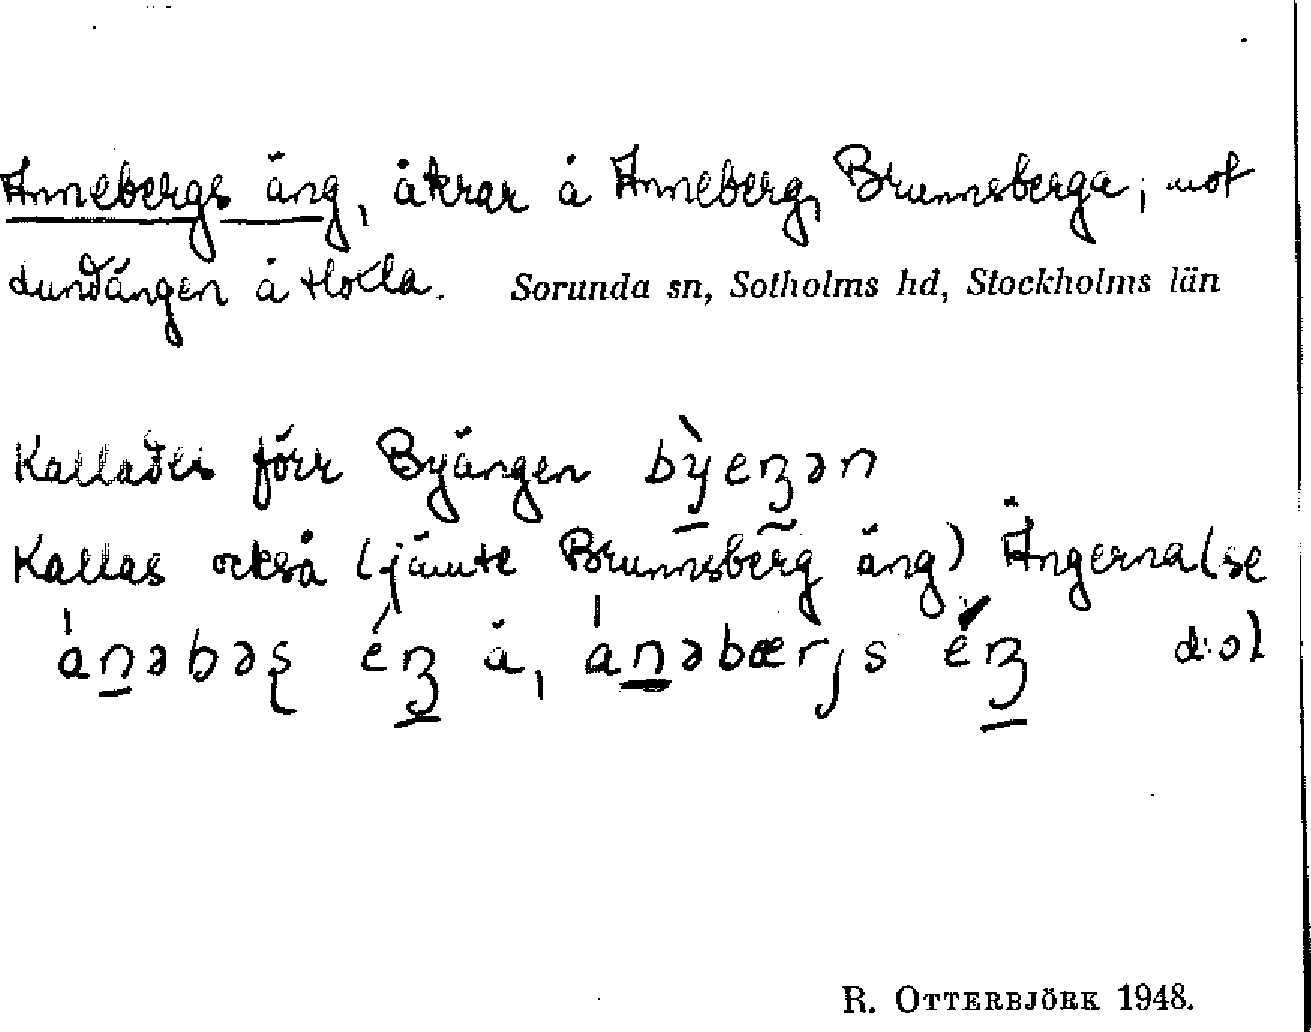 Annebergs äng, åkrar å Anneberg, Brunnsberga; mot
Lundängen å Holla. Sorunda sn, Sotholms hd, Stockholms län
Kallades förr Byängen bỳeŋən
Kallas också (jämte Brunnsberg äng) Ängerna (se
d:o)
R. OTTERBJÖRK 1948.